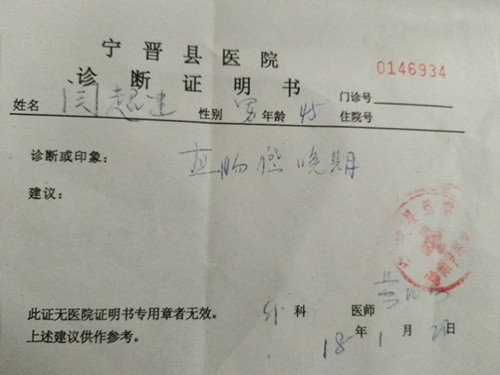 宁晋县医院
诊断证明书 0146934
门诊号
姓名 闫超 性别 男 年龄 45 住院号
诊断或印象: 直肠癌晚期
建议:
此证无医院证明书专用章者无效。 外科 医师
上述建议供作参考。 18年1月 日